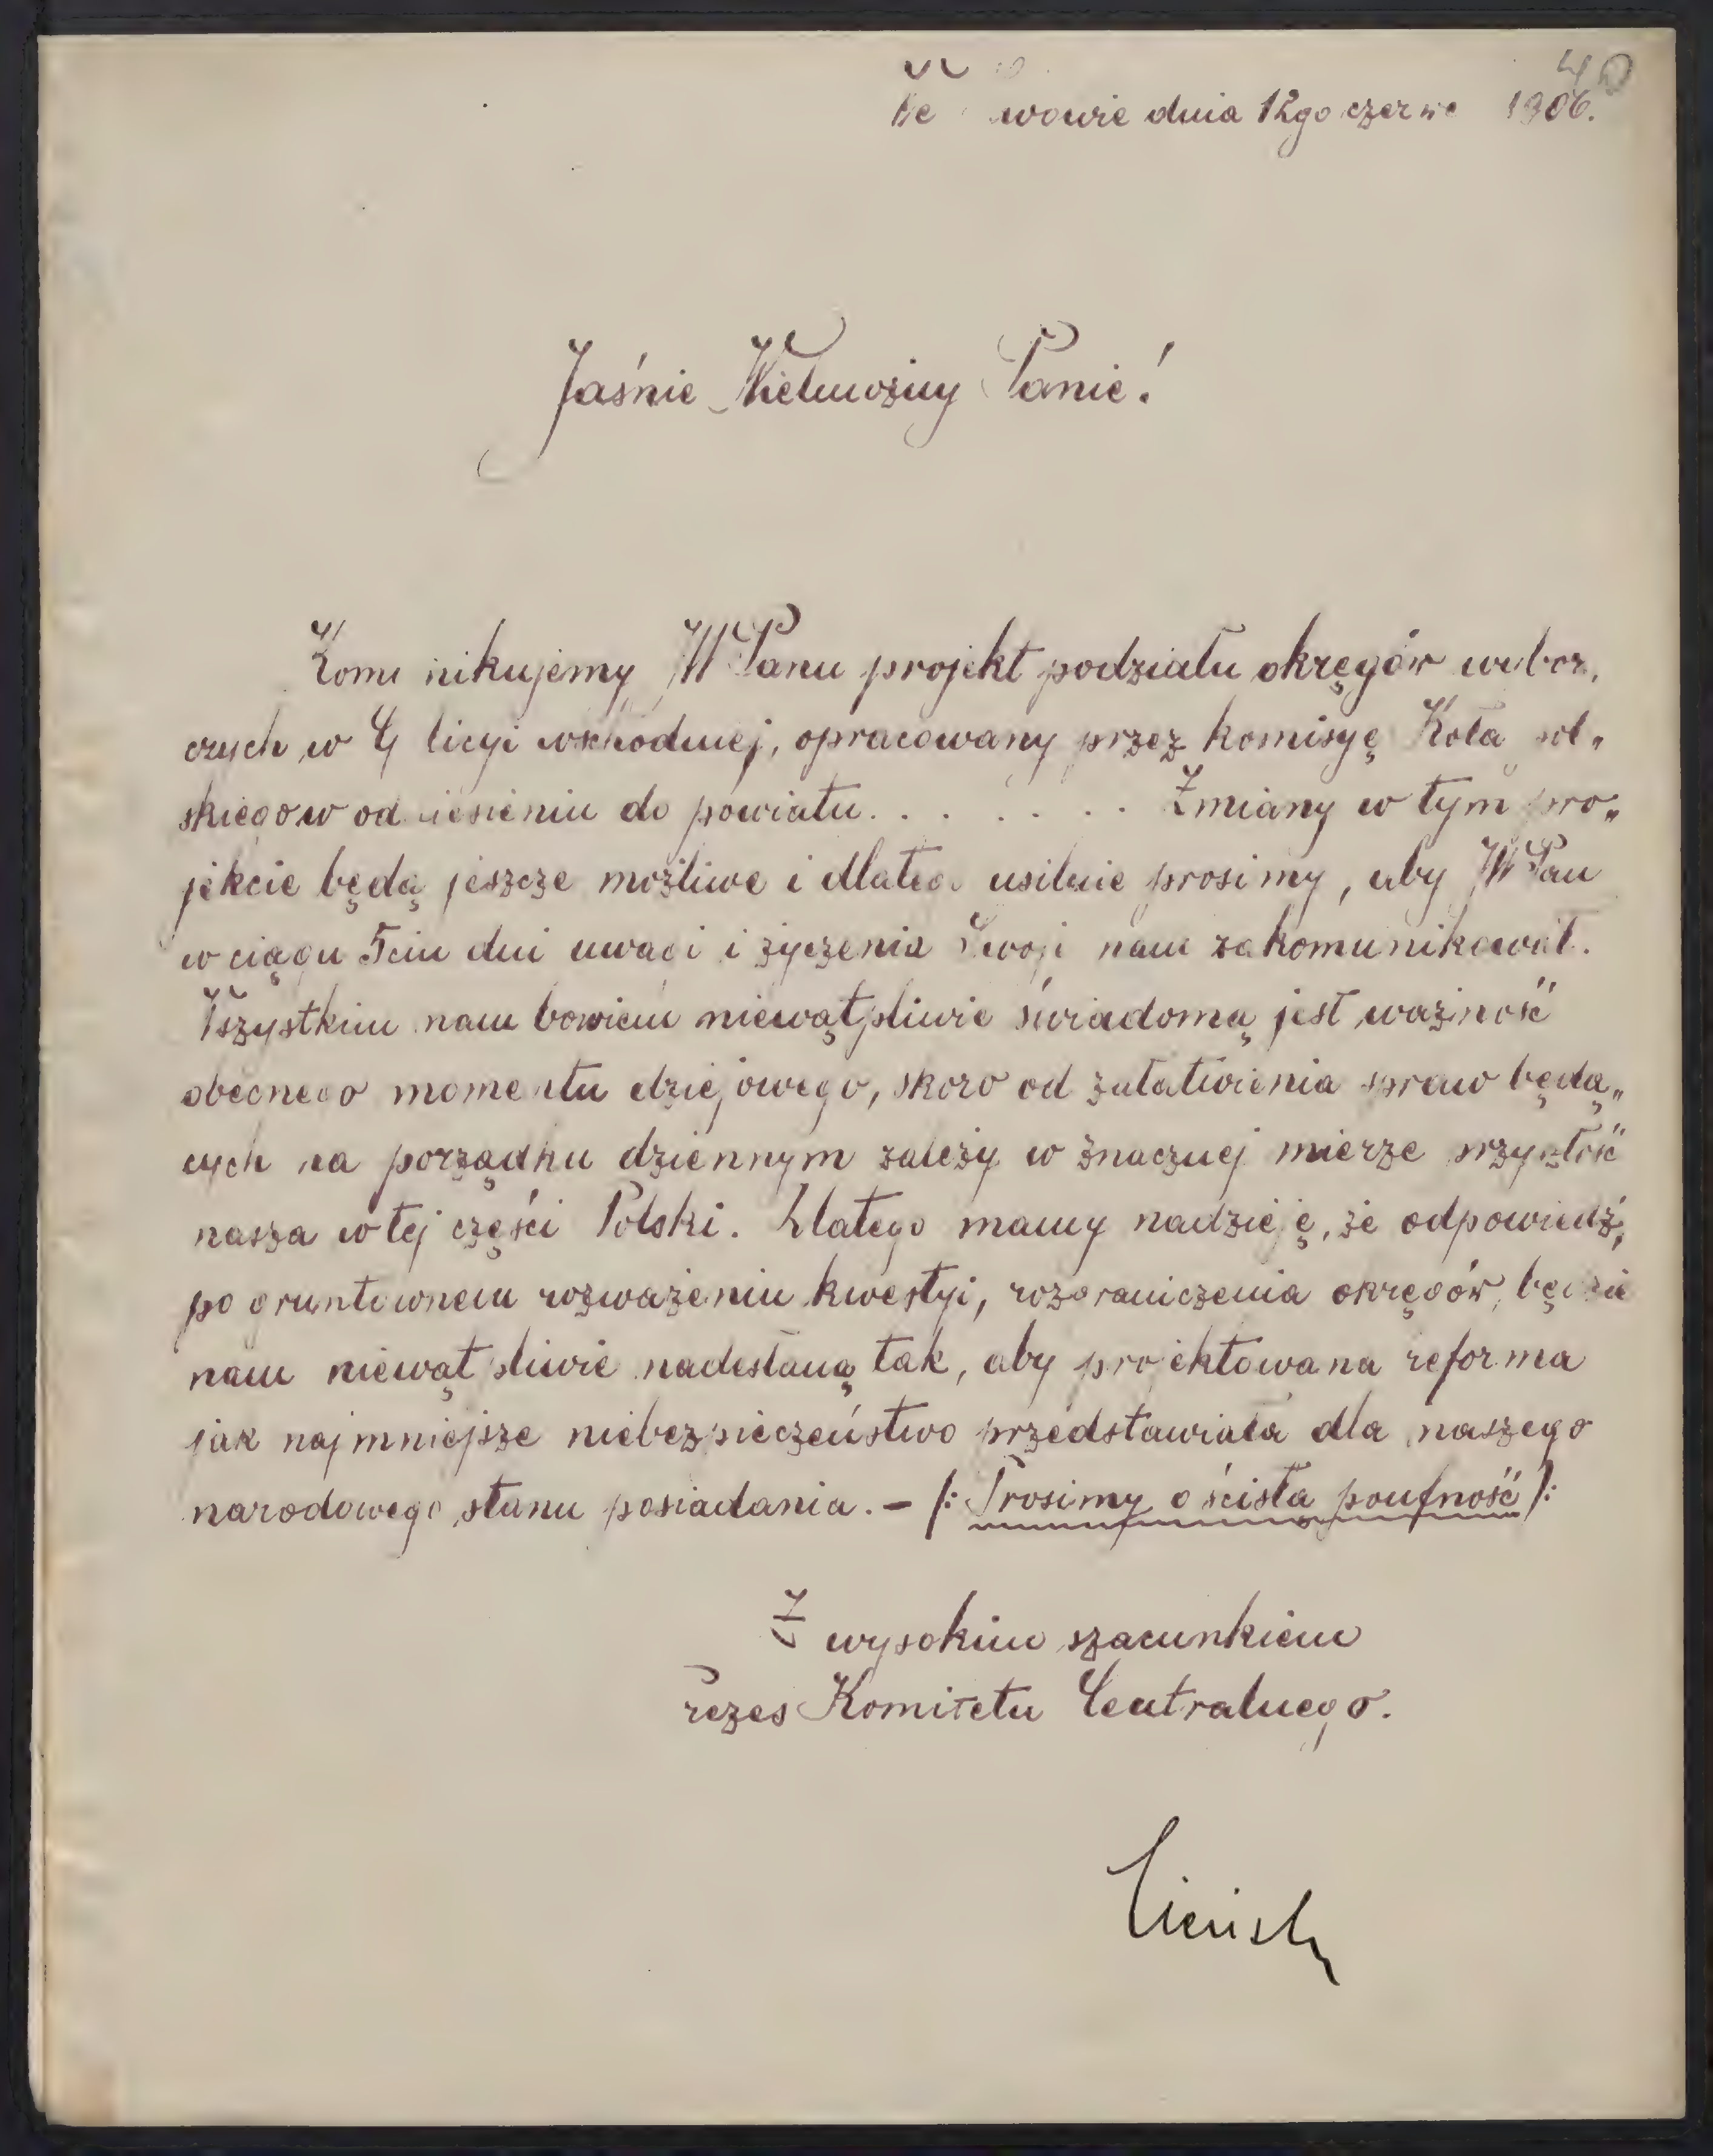 We Lwowie dnia 12go czerwca 1906.
Jaśnie Wielmożny Panie!
Komunikujemy JWPanu projekt podziału okręgów wybor„
czych w Galicyi wschodniej, opracowany przez komisyę Koła pol„
skiego w odniesieniu do powiatu . . . . . . . Zmiany w tym pro„
jekcie będą jeszcze możliwe i dlatego usilnie prosimy, aby JWPan
w ciągu 5ciu dni uwagi i życzenia Swoje nam zakomunikował.
Wszystkim nam bowiem niewątpliwie świadomą jest ważność
obecnego momentu dziejowego, skoro od załatwienia spraw będą„
cych na porządku dziennym zależy w znacznej mierze przyszłość
nasza w tej części Polski. Dlatego mamy nadzieję, że odpowiedź,
po gruntownem rozważeniu kwestyi, rozgraniczenia okręgów, będzie
nam niewątpliwie nadesłaną tak, aby projektowana reforma
jak najmniejsze niebezpieczeństwo przedstawiała dla naszego
narodowego stanu posiadania. – /: Prosimy o ścisłą poufność /:
Z wysokim szacunkiem
Prezes Komitetu Centralnego.